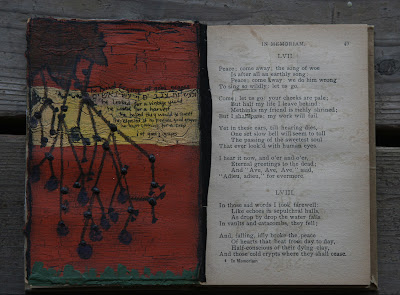 he looked for a
IN MEMORIAM. 47
LVII.
Peace; come away: the song of woe
Is after all an earthly song:
Peace; come away: we do him wrong
To sing so wildly: let us go.
Come; let us go: your cheeks are pale;
But half my life I leave behind:
Methinks my friend is richly shrined;
But I shall pass; my work will fail.
Yet in these ears, till hearing dies,
One set slow bell will seem to toll
The passing of the sweetest soul
That ever look'd with human eyes.
I hear it now, and o'er and o'er,
Eternal greetings to the dead;
And "Ave, Ave, Ave," said,
"Adieu, adieu," for evermore.
LVIII.
In those sad words I took farewell:
Like echoes in sepulchral halls,
As drop by drop the water falls
In vaults and catacombs, they fell;
And, falling, idly broke the peace
Of hearts that beat from day to day,
Half-conscious of their dying clay,
And those cold crypts where they shall cease.
4 In Memoriam